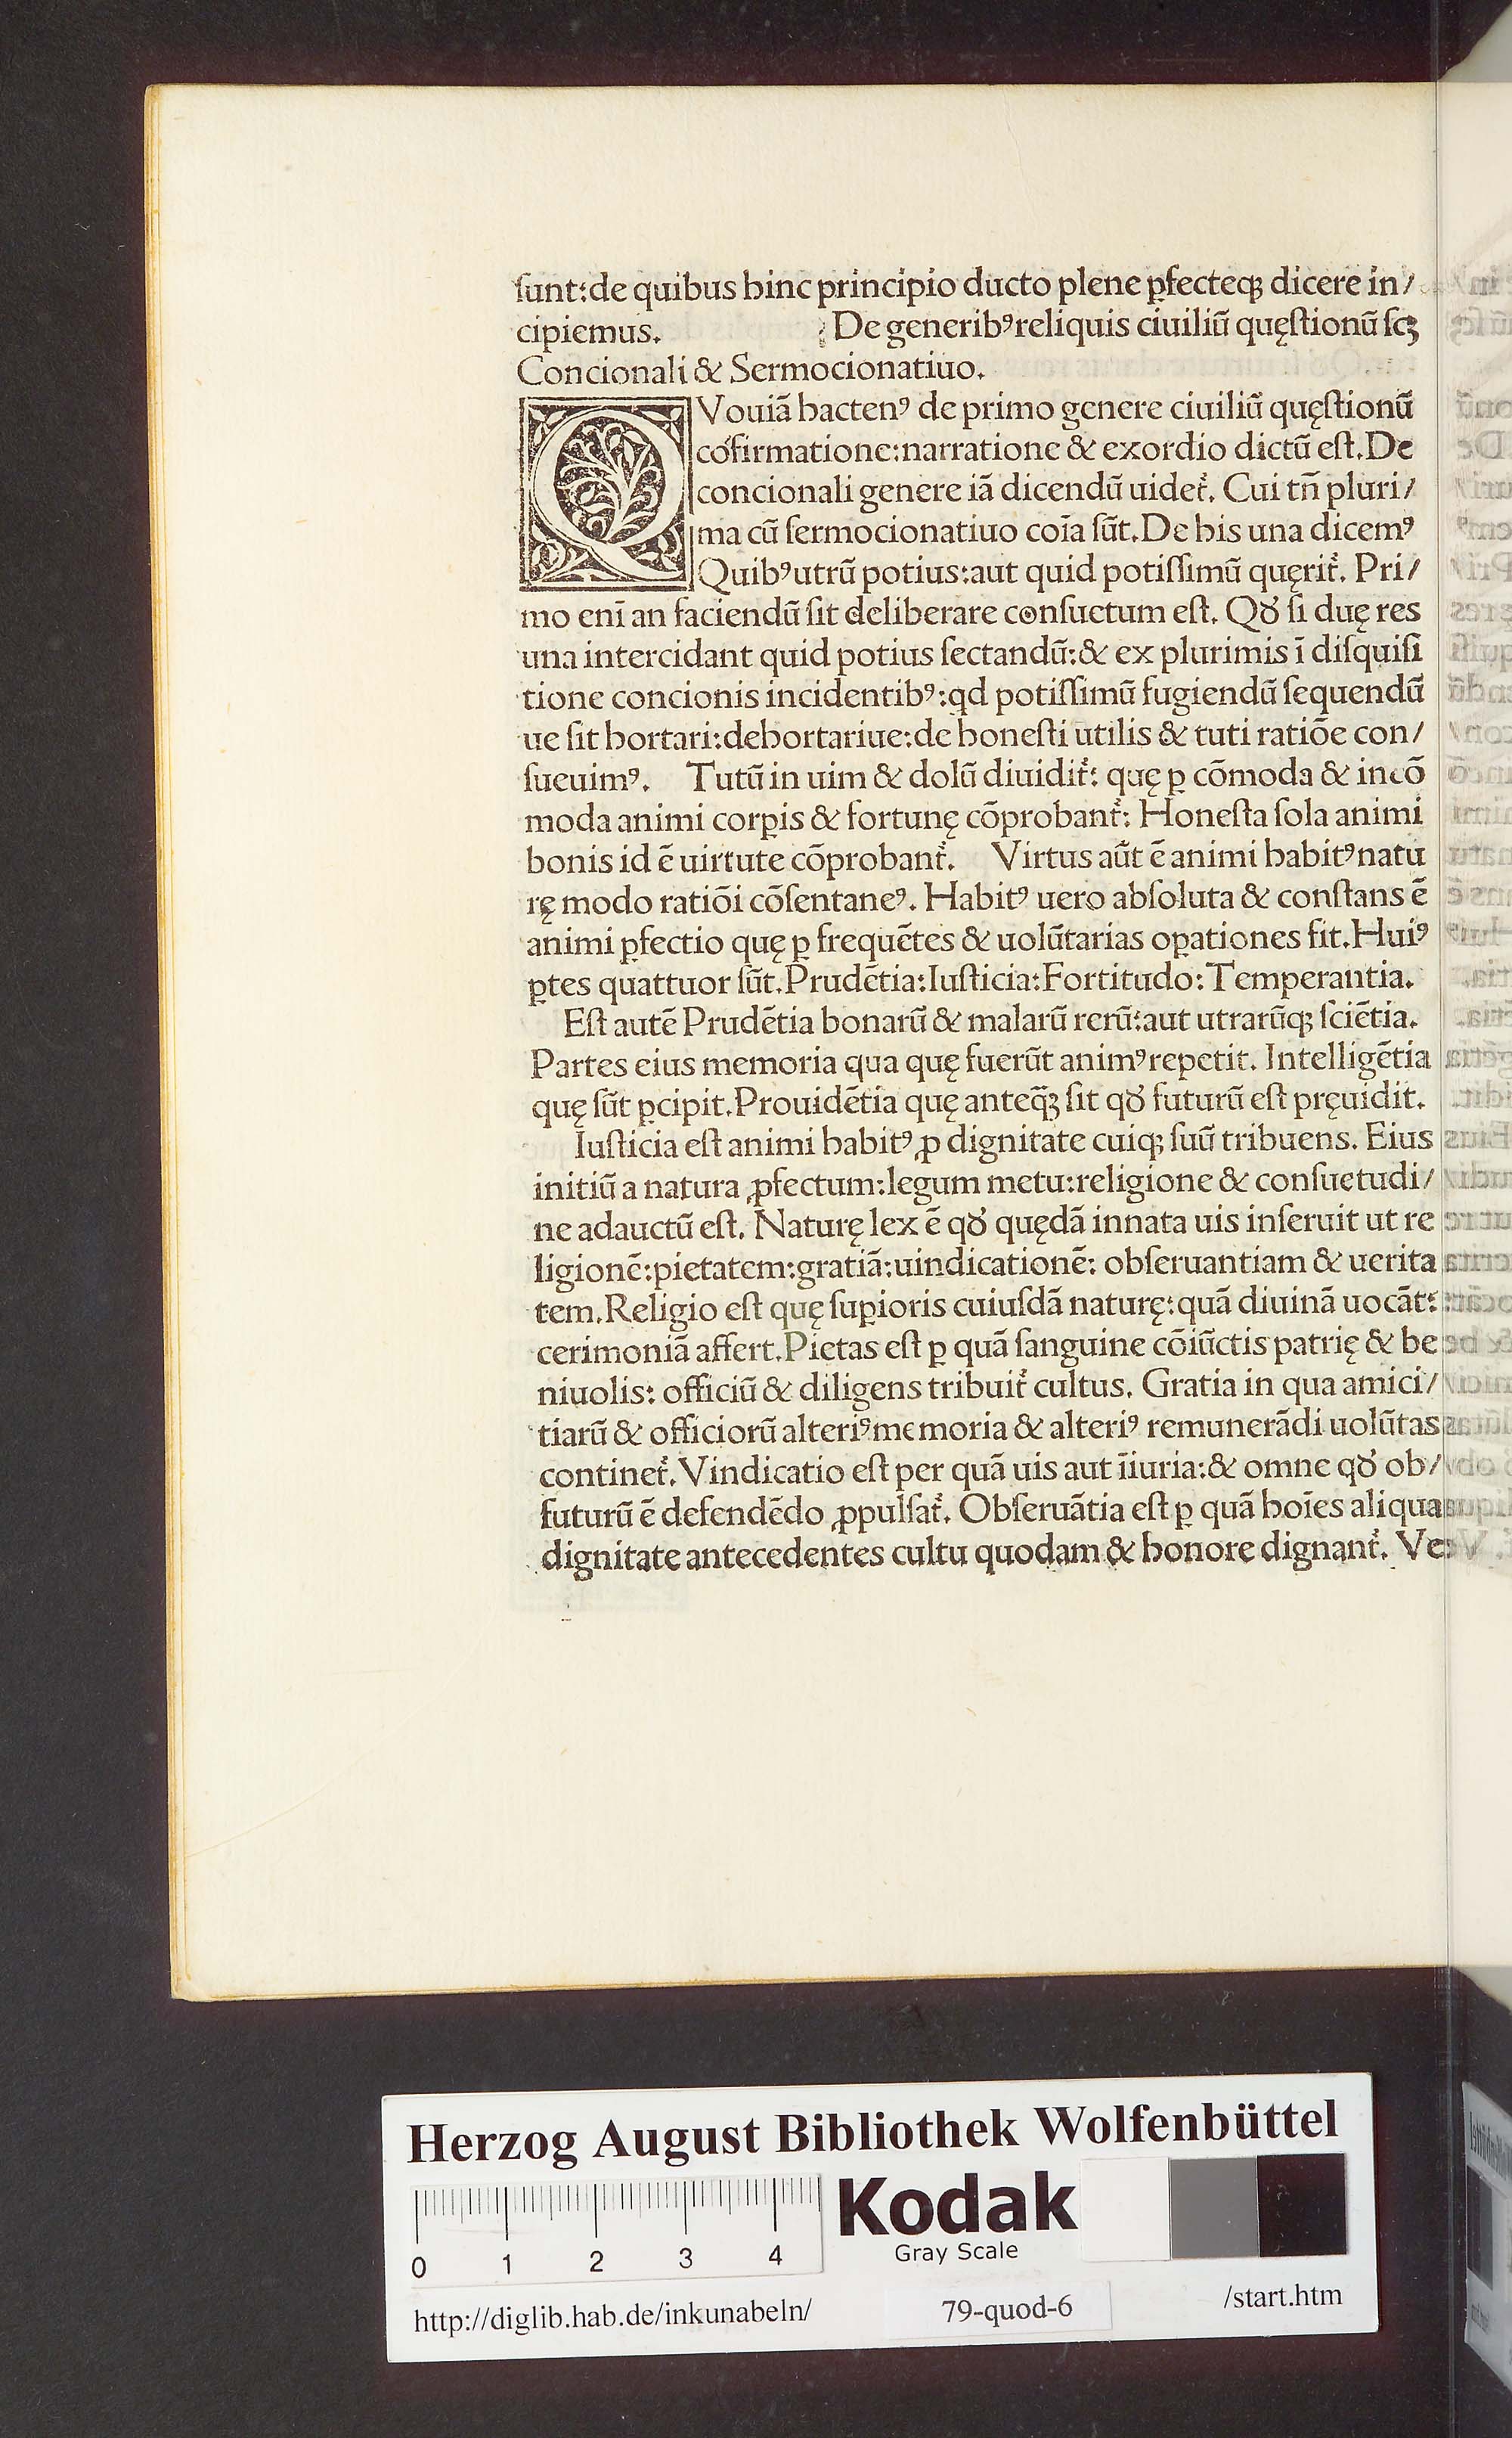 ſunt: de quibus hinc principio ducto plene ꝑfecteqꝫ dicere in/
cipiemus. De generibꝰ reliquis ciuiliū quęſtionū ſcꝫ
Concionali & Sermocionatiuo.
QVouiā hactenꝰ de primo genere ciuiliū quęſtionū
cōfirmatione: narratione & exordio dictū eſt. De
concionali genere iā dicendū uidet᷑. Cui tn̄ pluri/
ma cū ſermocionatiuo coīa ſūt. De his una dicemꝰ
Quibꝰ utrū potius: aut quid potiſſimū quęrit᷑. Pri/
mo enī an faciendū ſit deliberare conſuetum eſt. Qđ ſi duę res
una intercidant quid potius ſectandū: & ex plurimis ī diſquiſi
tione concionis incidentibꝰ: qd potiſſimū fugiendū ſequendū
ue ſit hortari: dehortariue: de honeſti utilis & tuti ratiōe con/
ſueuimꝰ. Tutū in uim & dolū diuidit᷑: quę ꝑ cōmoda & incō
moda animi corꝑis & fortunę cōprobant᷑: Honeſta ſola animi
bonis id ē uirtute cōprobant᷑. Virtus aūt ē animi habitꝰ natu
rę modo ratiōi cōſentaneꝰ. Habitꝰ uero abſoluta & conſtans ē
animi ꝑfectio quę ꝑ frequētes & uolūtarias oꝑationes fit. Huiꝰ
ꝑtes quattuor ſūt. Prudētia: Iuſticia: Fortitudo: Temperantia.
Eſt autē Prudētia bonarū & malarū rerū: aut utrarūqꝫ ſciētia.
Partes eius memoria qua quę fuerūt animꝰ repetit. Intelligētia
quę ſūt ꝑcipit. Prouidētia quę anteq̄ꝫ ſit qđ futurū eſt pręuidit.
Iuſticia eſt animi habitꝰ ꝓ dignitate cuiqꝫ ſuū tribuens. Eius
initiū a natura ꝓfectum: legum metu: religione & conſuetudi/
ne adauctū eſt. Naturę lex ē qđ quędā innata uis inſeruit ut re
ligionē: pietatem: gratiā: uindicationē: obſeruantiam & uerita
tem. Religio eſt quę ſuꝑioris cuiuſdā naturę: quā diuinā uocāt:
cerimoniā affert. Pietas eſt ꝑ quā ſanguine cōiūctis patrię & be
niuolis: officiū & diligens tribuit᷑ cultus. Gratia in qua amici/
tiarū & officiorū alteriꝰ memoria & alteriꝰ remunerādi uolūtas
continet᷑. Vindicatio eſt per quā uis aut īiuria: & omne qđ ob/
futurū ē defendēdo ꝓpulſat᷑. Obſeruātia eſt ꝑ quā hoīes aliqua
dignitate antecedentes cultu quodam & honore dignant᷑. Ve:
Herzog August Bibliothek Wolfenbüttel
0 1 2 3 4
Kodak
Gray Scale
http://diglib.hab.de/inkunabeln/ 79-quod-6 /start.htm